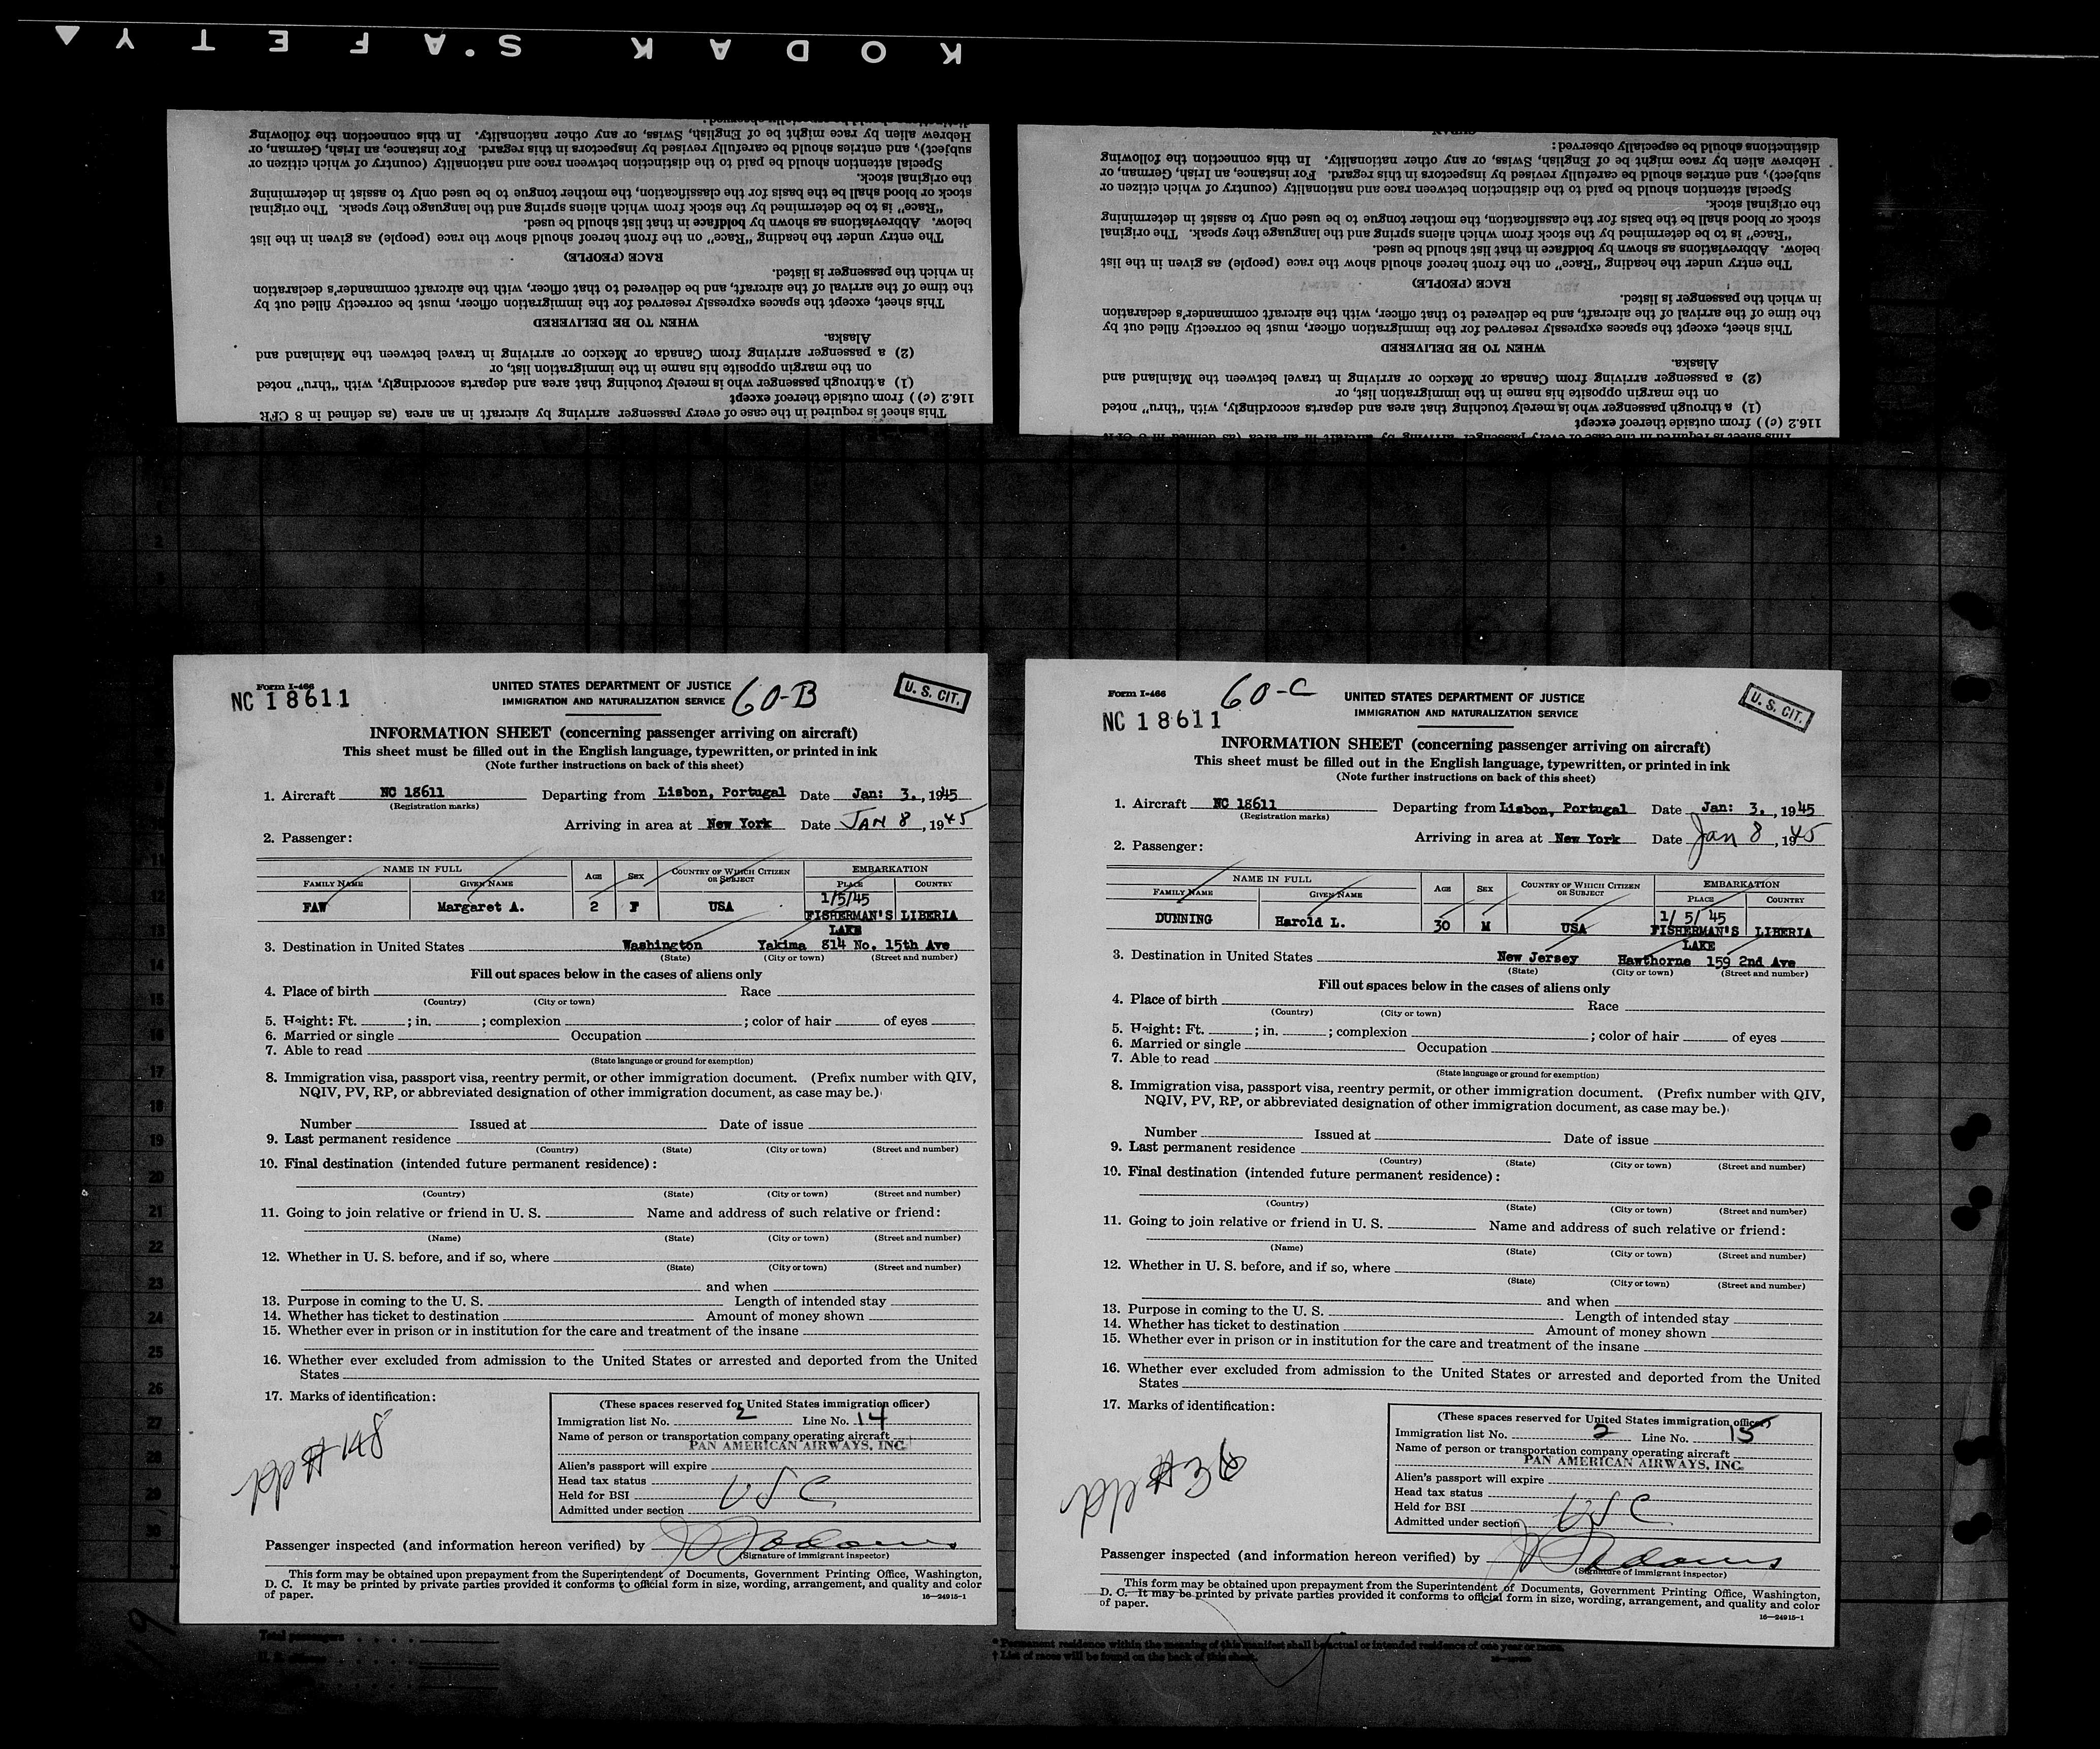 KODAK S·AFETY
distinctions should be especially observed:
Hebrew alien by race might be of English, Swiss, or any other nationality. In this connection the following
subject), and entries should be carefully revised by inspectors in this regard. For instance, an Irish, German, or
Special attention should be paid to the distinction between race and nationality (country of which citizen or
the original stock.
stock or blood shall be the basis for the classification, the mother tongue to be used only to assist in determining
"Race" is to be determined by the stock from which aliens spring and the language they speak. The original
below. Abbreviations as shown by boldface in that list should be used.
The entry under the heading "Race" on the front hereof should show the race (people) as given in the list
RACE (PEOPLE)
in which the passenger is listed.
the time of the arrival of the aircraft, and be delivered to that officer, with the aircraft commander's declaration
This sheet, except the spaces expressly reserved for the immigration officer, must be correctly filled out by
WHEN TO BE DELIVERED
Alaska.
(2) a passenger arriving from Canada or Mexico or arriving in travel between the Mainland and
on the margin opposite his name in the immigration list, or
(1) a through passenger who is merely touching that area and departs accordingly, with "thru" noted
116.2 (c) ) from outside thereof except
This sheet is required in the case of every passenger arriving by aircraft in an area (as defined in 8 CFR
CUBAN
distinctions should be especially observed:
Hebrew alien by race might be of English, Swiss, or any other nationality. In this connection the following
subject), and entries should be carefully revised by inspectors in this regard. For instance, an Irish, German, or
Special attention should be paid to the distinction between race and nationality (country of which citizen or
the original stock.
stock or blood shall be the basis for the classification, the mother tongue to be used only to assist in determining
"Race" is to be determined by the stock from which aliens spring and the language they speak. The original
below. Abbreviations as shown by boldface in that list should be used.
The entry under the heading "Race" on the front hereof should show the race (people) as given in the list
RACE (PEOPLE)
in which the passenger is listed.
the time of the arrival of the aircraft, and be delivered to that officer, with the aircraft commander's declaration
This sheet, except the spaces expressly reserved for the immigration officer, must be correctly filled out by
WHEN TO BE DELIVERED
Alaska.
(2) a passenger arriving from Canada or Mexico or arriving in travel between the Mainland and
on the margin opposite his name in the immigration list, or
(1) a through passenger who is merely touching that area and departs accordingly, with "thru" noted
116.2 (c) ) from outside thereof except
This sheet is required in the case of every passenger arriving by aircraft in an area (as defined in 8 CFR
Form I-466
NC 18611
UNITED STATES DEPARTMENT OF JUSTICE
IMMIGRATION AND NATURALIZATION SERVICE
60-B
U. S. CIT.
INFORMATION SHEET (concerning passenger arriving on aircraft)
This sheet must be filled out in the English language, typewritten, or printed in ink
(Note further instructions on back of this sheet)
1. Aircraft NC 18611 Departing from Lisbon, Portugal Date Jan: 3., 1945
(Registration marks)
Arriving in area at New York Date JAN 8, 1945
2. Passenger:
NAME IN FULL AGE SEX COUNTRY OF WHICH CITIZEN OR SUBJECT EMBARKATION
FAMILY NAME GIVEN NAME PLACE COUNTRY
1/5/45
FAW Margaret A. 2 F USA FISHERMAN'S LIBERIA
LAKE
3. Destination in United States Washington Yakima 814 No. 15th Ave
(State) (City or town) (Street and number)
Fill out spaces below in the cases of aliens only
4. Place of birth Race
(Country) (City or town)
5. Height: Ft. ; in. ; complexion ; color of hair of eyes
6. Married or single Occupation
7. Able to read
(State language or ground for exemption)
8. Immigration visa, passport visa, reentry permit, or other immigration document. (Prefix number with QIV,
NQIV, PV, RP, or abbreviated designation of other immigration document, as case may be.)
Number Issued at Date of issue
9. Last permanent residence
(Country) (State) (City or town) (Street and number)
10. Final destination (intended future permanent residence):
(Country) (State) (City or town) (Street and number)
11. Going to join relative or friend in U. S. Name and address of such relative or friend:
(Name) (State) (City or town) (Street and number)
12. Whether in U. S. before, and if so, where
(State) (City or town) (Street and number)
and when
13. Purpose in coming to the U. S. Length of intended stay
14. Whether has ticket to destination Amount of money shown
15. Whether ever in prison or in institution for the care and treatment of the insane
16. Whether ever excluded from admission to the United States or arrested and deported from the United
States
17. Marks of identification:
pp # 148
(These spaces reserved for United States immigration officer)
Immigration list No. 2 Line No. 14
Name of person or transportation company operating aircraft
PAN AMERICAN AIRWAYS, INC.
Alien's passport will expire
Head tax status
Held for BSI USC
Admitted under section
Passenger inspected (and information hereon verified) by
(Signature of immigrant inspector)
This form may be obtained upon prepayment from the Superintendent of Documents, Government Printing Office, Washington,
D. C. It may be printed by private parties provided it conforms to official form in size, wording, arrangement, and quality and color
of paper.
16—24915-1
Form I-466
60-C
NC 18611
UNITED STATES DEPARTMENT OF JUSTICE
IMMIGRATION AND NATURALIZATION SERVICE
U. S. CIT.
INFORMATION SHEET (concerning passenger arriving on aircraft)
This sheet must be filled out in the English language, typewritten, or printed in ink
(Note further instructions on back of this sheet)
1. Aircraft NC 18611 Departing from Lisbon, Portugal Date Jan: 3., 1945
(Registration marks)
Arriving in area at New York Date Jan 8, 1945
2. Passenger:
NAME IN FULL AGE SEX COUNTRY OF WHICH CITIZEN OR SUBJECT EMBARKATION
FAMILY NAME GIVEN NAME PLACE COUNTRY
1/ 5/ 45
DUNNING Harold L. 30 M USA FISHERMAN'S LIBERIA
LAKE
3. Destination in United States New Jersey Hawthorne 159 2nd Ave
(State) (City or town) (Street and number)
Fill out spaces below in the cases of aliens only
4. Place of birth Race
(Country) (City or town)
5. Height: Ft. ; in. ; complexion ; color of hair of eyes
6. Married or single Occupation
7. Able to read
(State language or ground for exemption)
8. Immigration visa, passport visa, reentry permit, or other immigration document. (Prefix number with QIV,
NQIV, PV, RP, or abbreviated designation of other immigration document, as case may be.)
Number Issued at Date of issue
9. Last permanent residence
(Country) (State) (City or town) (Street and number)
10. Final destination (intended future permanent residence):
(Country) (State) (City or town) (Street and number)
11. Going to join relative or friend in U. S. Name and address of such relative or friend:
(Name) (State) (City or town) (Street and number)
12. Whether in U. S. before, and if so, where
(State) (City or town) (Street and number)
and when
13. Purpose in coming to the U. S. Length of intended stay
14. Whether has ticket to destination Amount of money shown
15. Whether ever in prison or in institution for the care and treatment of the insane
16. Whether ever excluded from admission to the United States or arrested and deported from the United
States
17. Marks of identification:
(These spaces reserved for United States immigration officer)
Immigration list No. 2 Line No. 15
Name of person or transportation company operating aircraft
PAN AMERICAN AIRWAYS, INC.
Alien's passport will expire
Head tax status
Held for BSI USC
Admitted under section
Passenger inspected (and information hereon verified) by
(Signature of immigrant inspector)
This form may be obtained upon prepayment from the Superintendent of Documents, Government Printing Office, Washington,
D. C. It may be printed by private parties provided it conforms to official form in size, wording, arrangement, and quality and color
of paper.
16—24915-1
Total passengers
* Permanent residence within the meaning of this manifest shall be actual or intended residence of one year or more.
† List of races will be found on the back of this sheet.